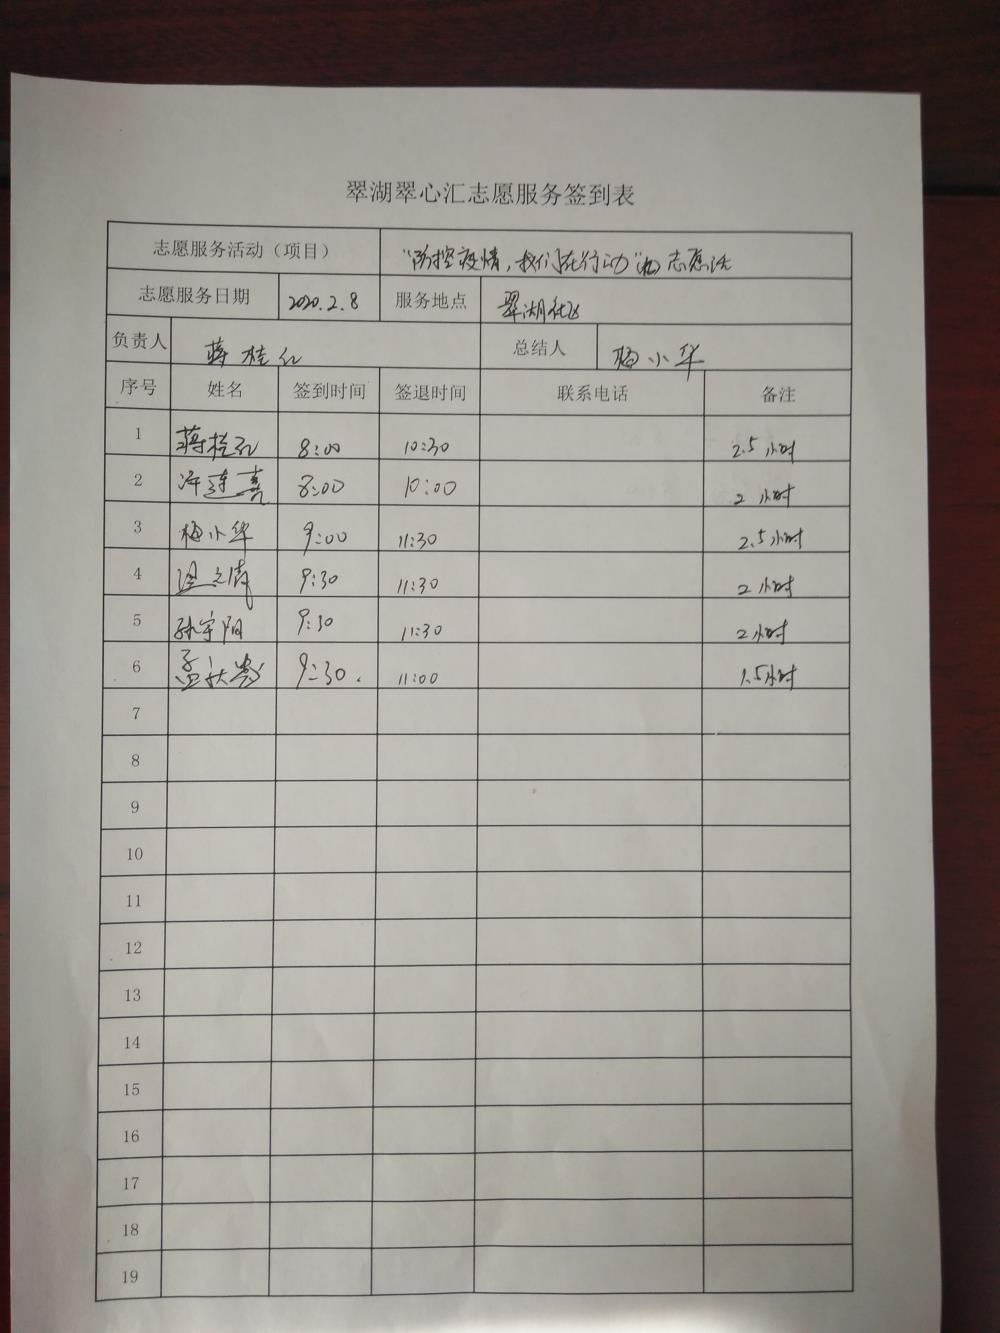 翠湖翠心汇志愿服务签到表
志愿服务活动（项目） “防控疫情，我们在行动” 志愿活
志愿服务日期 2020.2.8 服务地点 翠湖社区
负责人 蒋桂红 总结人 梅小华
序号 姓名 签到时间 签退时间 联系电话 备注
1 蒋桂红 8:00 10:30 2.5小时
2 连喜 8:00 10:00 2小时
3 梅小华 9:00 11:30 2.5小时
4 9:30 11:30 2小时
5 孙宇阳 9:30 11:30 2小时
6 孟秋 9:30. 11:00 1.5小时
7
8
9
10
11
12
13
14
15
16
17
18
19